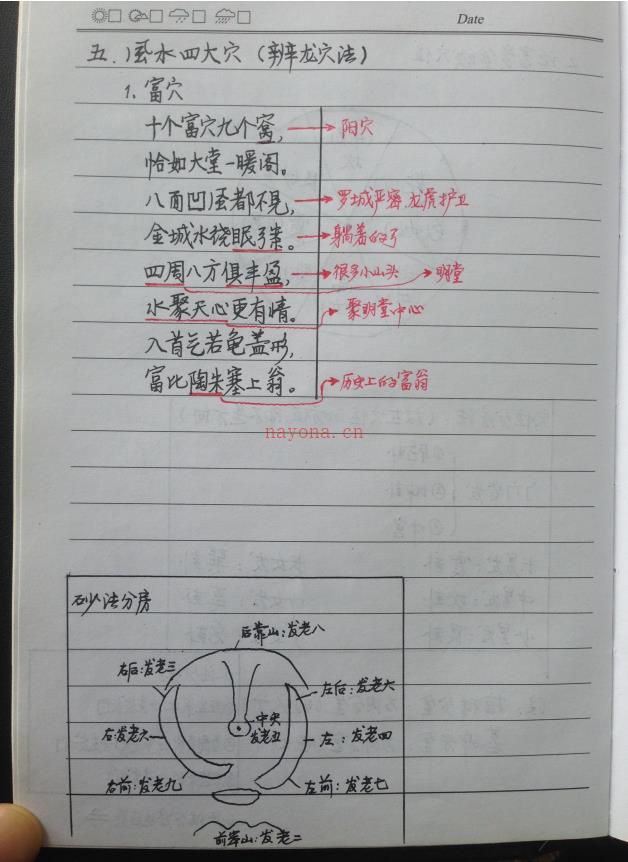 Date
五. 风水四大穴（辨龙穴法）
1. 富穴
十个富穴九个窝, → 阳穴
恰如大堂一暖阁。
八面凹风都不见, → 罗城严密, 龙虎护卫
金城水绕眠弓案。 → 躺着的弓
四周八方俱丰盈, → 很多小山头 → 明堂
水聚天心更有情。 → 聚明堂中心
入首气若龟盖形,
富比陶朱塞上翁。 → 历史上的富翁
nayona.cn
砂法分房
后靠山:发老八
右后:发老三
左后:发老六
中央
发老五
右:发老六
左:发老四
右前:发老九
左前:发老七
前案山:发老二